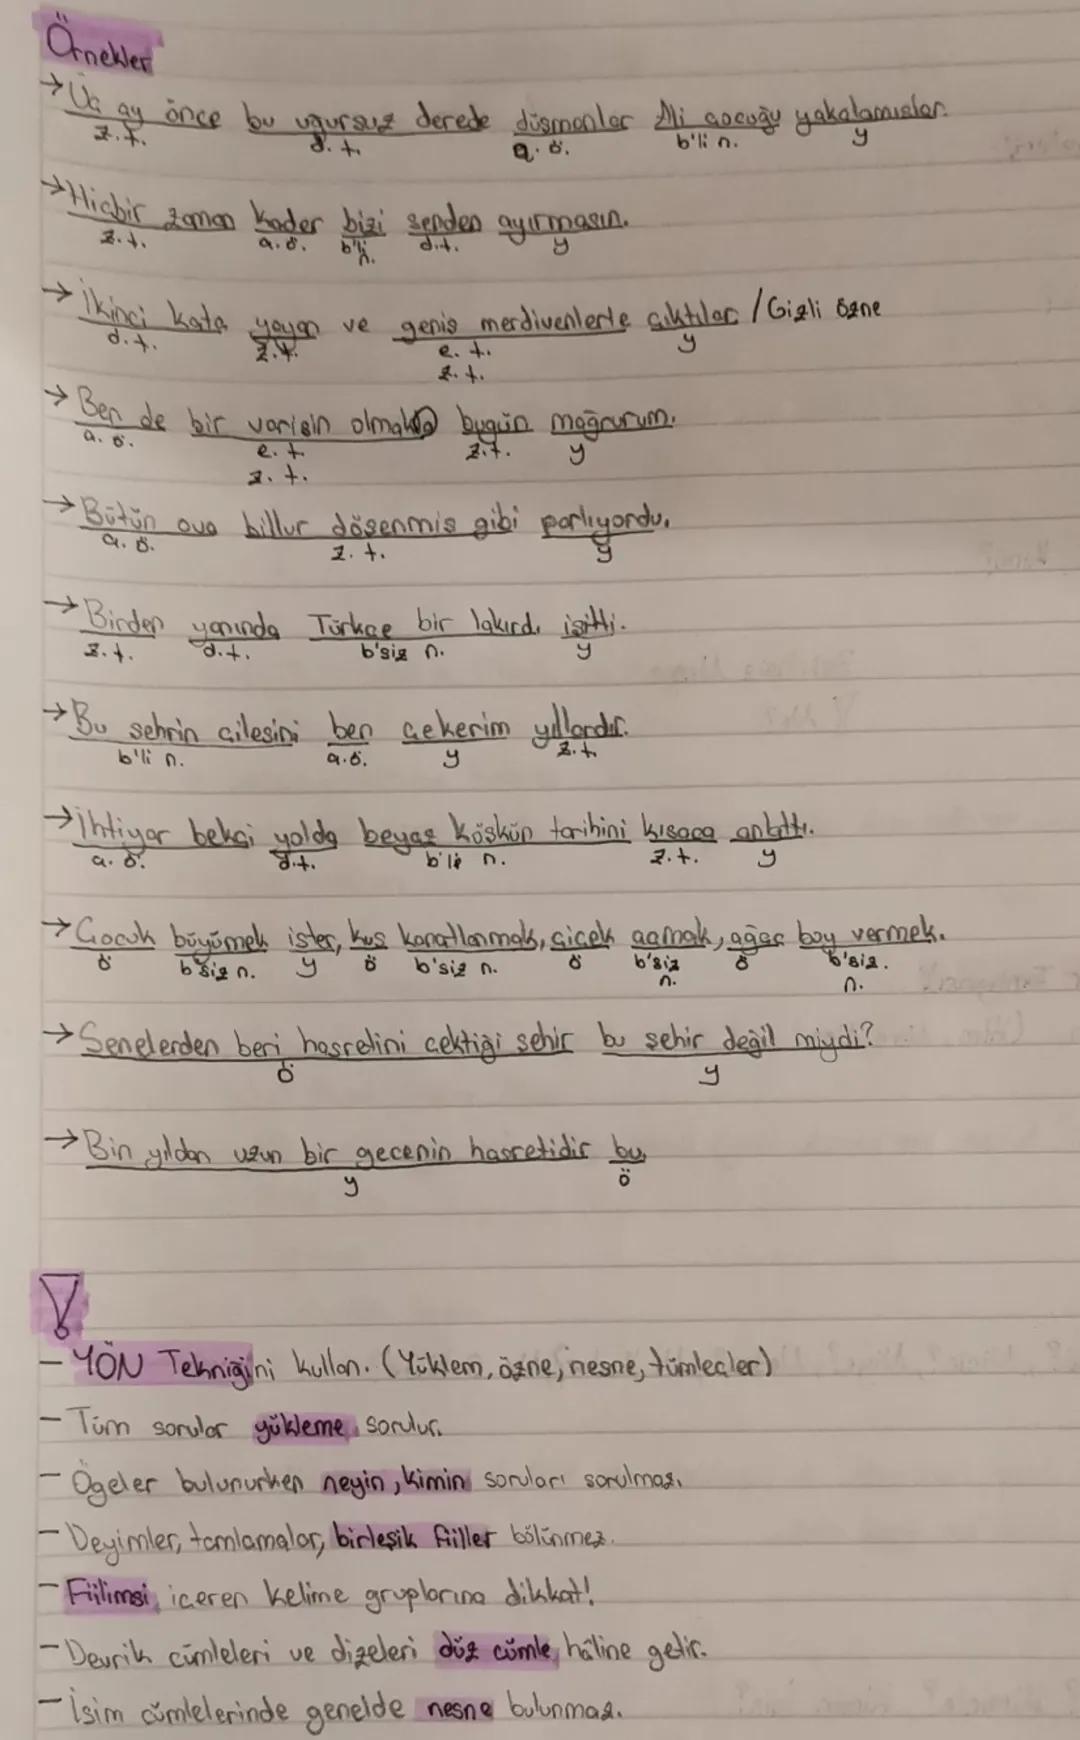 Örnekler
→ Üç ay önce bu uğursuz derede düşmanlar Ali çocuğu yakalamışlar.
z.t. d.t. a.ö. b'li n. y
→ Hiçbir zaman kader bizi senden ayırmasın.
z.t. a.ö. b'li n. d.t. y
→ İkinci kata yayan ve geniş merdivenlerle çıktılar. / Gizli özne
d.t. z.t. e.t. y
z.t.
→ Ben de bir varisin olmakla bugün mağrurum.
a.ö. e.t. z.t. y
z.t.
→ Bütün ova billur döşenmiş gibi parlıyordu.
a.ö. z.t. y
→ Birden yanında Türkçe bir lakırdı işitti.
z.t. d.t. b'siz n. y
→ Bu şehrin çilesini ben çekerim yıllardır.
b'li n. a.ö. y z.t.
→ İhtiyar bekçi yolda beyaz köşkün tarihini kısaca anlattı.
a.ö. d.t. b'li n. z.t. y
→ Çocuk büyümek ister, kuş kanatlanmak, çiçek açmak, ağaç boy vermek.
ö b'siz n. y ö b'siz n. ö b'siz n. ö b'siz. n.
→ Senelerden beri hasretini çektiği şehir bu şehir değil miydi?
ö y
→ Bin yıldan uzun bir gecenin hasretidir bu.
y ö
!
- YÖN Tekniğini kullan. (Yüklem, özne, nesne, tümleçler)
- Tüm sorular yükleme sorulur.
- Ögeler bulunurken neyin, kimin soruları sorulmaz.
- Deyimler, tamlamalar, birleşik fiiller bölünmez.
- Fiilimsi içeren kelime gruplarına dikkat!
- Devrik cümleleri ve dizeleri düz cümle hâline getir.
- İsim cümlelerinde genelde nesne bulunmaz.